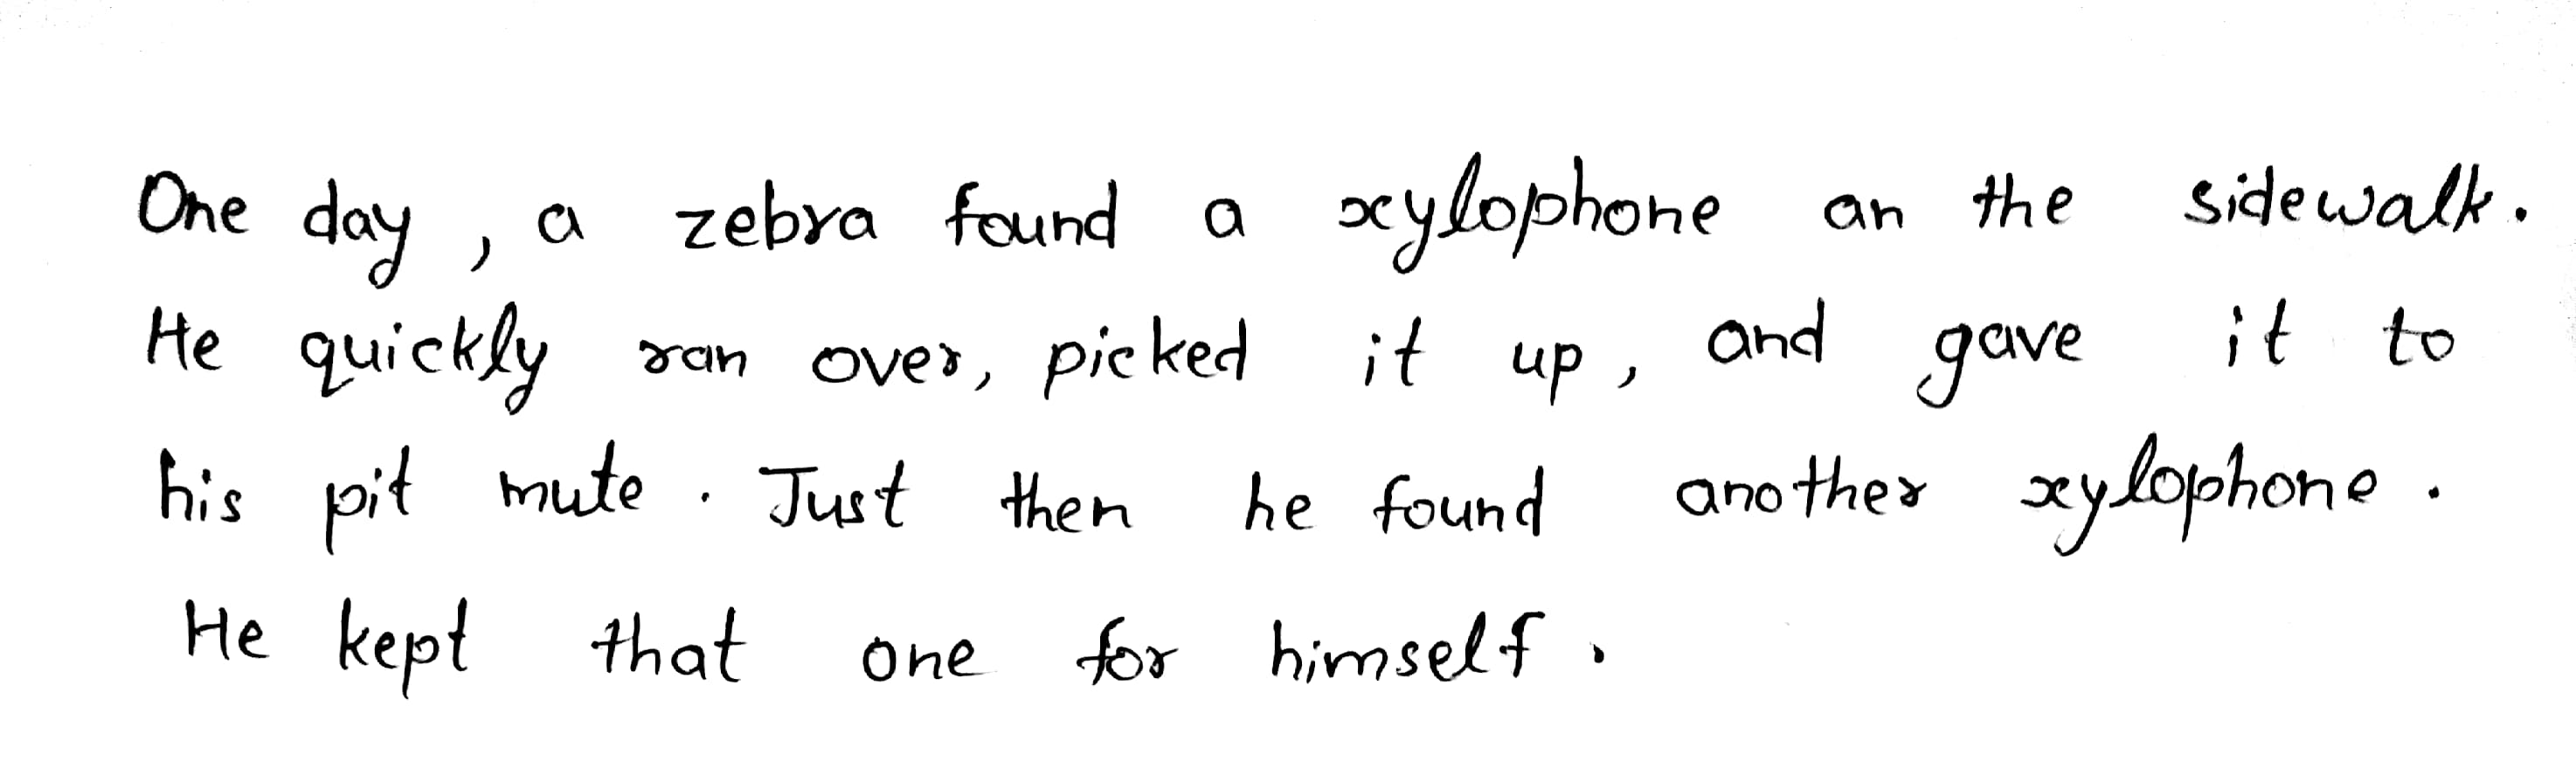 One day, a zebra found a xylophone an the sidewalk.
He quickly ran over, picked it up, and gave it to
his pit mute. Just then he found another xylophone.
He kept that one for himself.